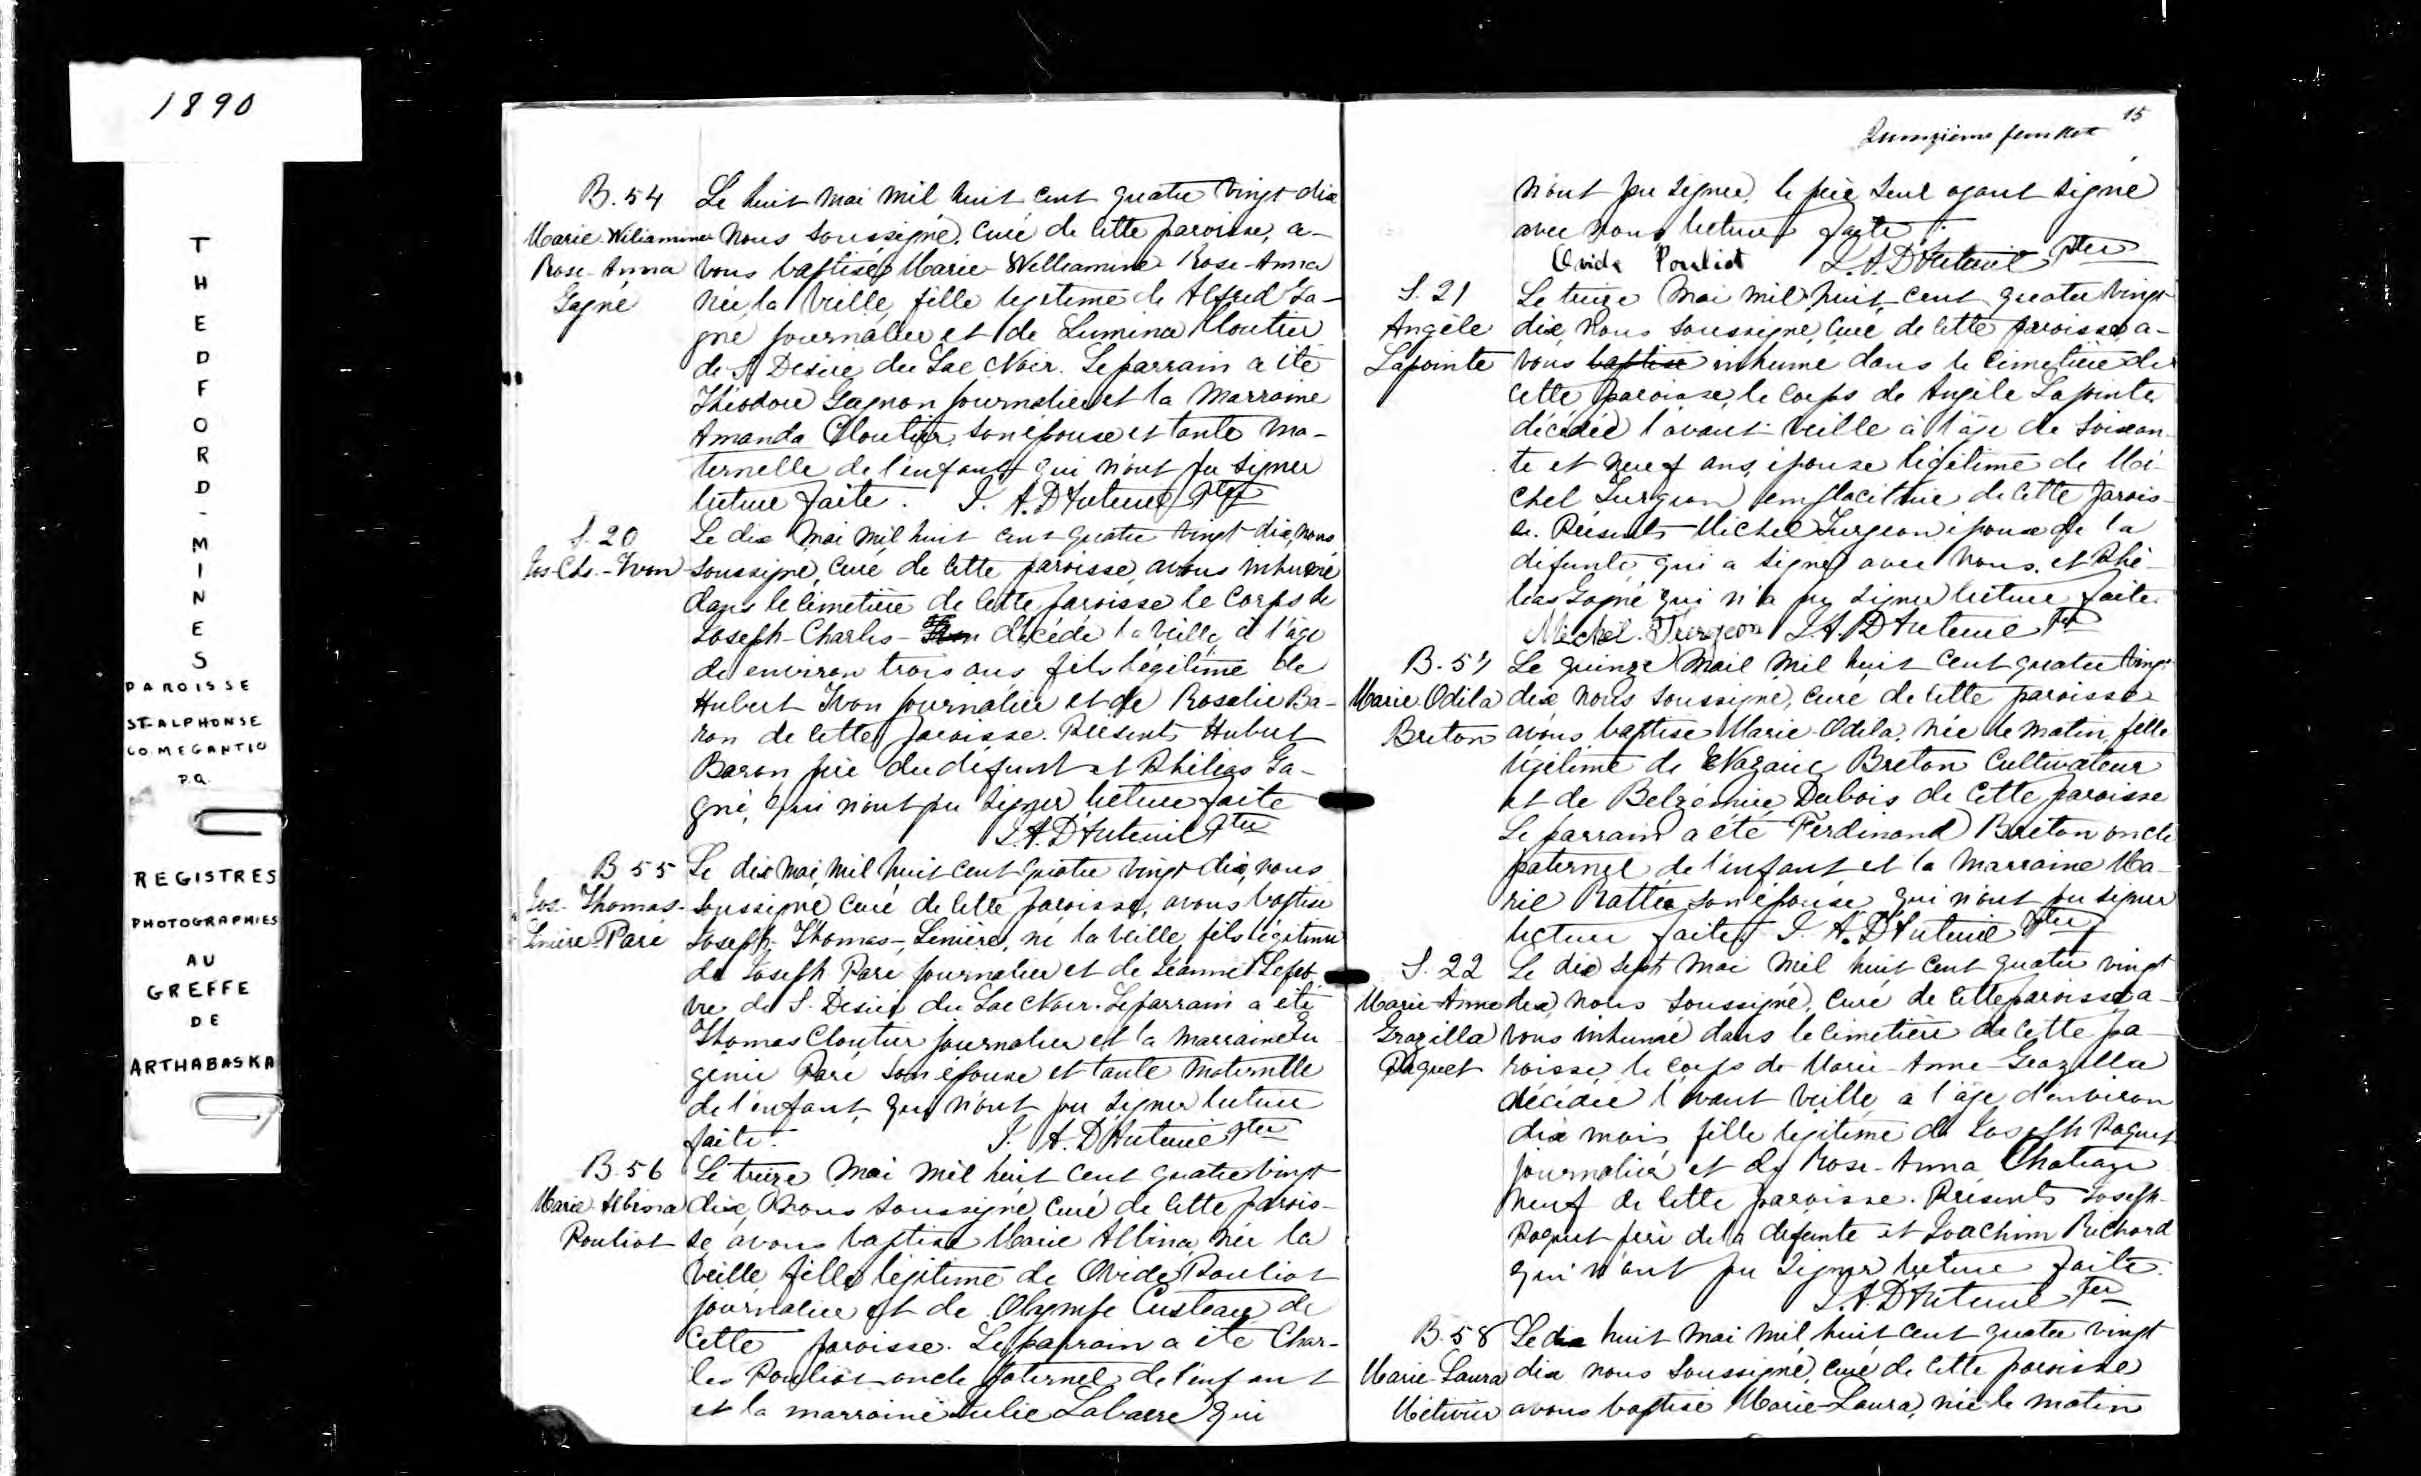 1890
THEDFORD-MINES
PAROISSE
ST-ALPHONSE
CO. MEGANTIC
P.Q.
REGISTRES
PHOTOGRAPHIES
AU
GREFFE
DE
ARTHABASKA
B. 54
Marie-Wiliamine
Rose-Anna
Gagné
Le huit mai mil huit cent quatre vingt dix
nous soussigné, curé de cette paroisse, a-
vons baptisé Marie Williamine Rose-Anna
née la veille, fille légitime de Alfred Ga-
gné journalier et de Lumina Cloutier
de S. Desiré du Lac Noir. Le parrain a été
Théodore Gagnon journalier et la marraine
Amanda Cloutier, son épouse et tante ma-
ternelle de l'enfant qui n'ont pu signer
lecture faite. J. A. D'Auteuil Ptre
S. 20
Jos-Chs.-Yvon
Le dix mai mil huit cent quatre vingt dix, nous
soussigné, curé de cette paroisse, avons inhumé
dans le cimetière de cette paroisse le corps de
Joseph-Charles- décédé la veille à l'âge
de environ trois ans fils légitime de
Hubert Yvon journalier et de Rosalie Ba-
ron de cette paroisse. Présents Hubert
Baron père du défunt et Philias Ga-
gné, qui n'ont pu signer lecture faite
J. A. D'Auteuil Ptre
B 55
Jos-Thomas-
Linière Paré
Le dix mai, mil huit cent quatre vingt dix, nous
soussigné curé de cette paroisse, avons baptisé
Joseph-Thomas-Linière, né la veille, fils légitime
de Joseph Paré journalier et de Jeanne Lefeb
vre de S. Desiré du Lac Noir. Le parrain a été
Thomas Cloutier journalier et la marraine Eu
génie Paré son épouse et tante maternelle
de l'enfant, qui n'ont pu signer lecture
faite. J. A. D'Auteuil Ptre
B. 56
Marie-Albina
Pouliot
Le treize mai mil huit cent quatre vingt
dix, nous soussigné curé de cette parois-
se avons baptisé Marie Albina née la
veille fille légitime de Ovide Pouliot
journalier et de Olympe Custeau de
cette paroisse. Le parrain a été Char-
les Pouliot oncle paternel de l'enfant
et la marraine Julie Labarre qui
15
Quinzième feuillet
n'ont pu signer, le père seul ayant signé
avec nous lecture faite.
Ovide Pouliot J. A. D'Auteuil Ptre
S. 21
Angèle
Lapointe
Le treize mai mil huit cent quatre vingt
dix, nous soussigné, curé de cette paroisse, a-
vons baptisé inhumé dans le cimetière de
cette paroisse, le corps de Angèle Lapointe
décédée l'avant-veille à l'âge de soixan-
te et neuf ans, épouse légitime de Mi-
chel Turgeon emplacitaire de cette parois-
se. Présents Michel Turgeon époux de la
défunte, qui a signé avec nous, et Phi-
lias Gagné qui n'a pu signer lecture faite.
Michel Turgeon J. A. D'Auteuil Ptre
B. 57
Marie-Odila
Breton
Le quinze mail mil huit cent quatre vingt
dix nous soussigné, curé de cette paroisse
avons baptisé Marie-Odila, née le matin, fille
légitime de Nazaire Breton cultivateur
et de Belzémire Dubois de cette paroisse
Le parrain a été Ferdinand Breton oncle
paternel de l'enfant et la marraine Ma-
rie Rattée son épouse qui n'ont pu signer
lecture faite. J. A. D'Auteuil Ptre
S. 22
Marie-Anne
Grazilla
Paquet
Le dix sept mai mil huit cent quatre vingt
dix, nous soussigné, curé de cette paroisse a-
vons inhumé dans le cimetière de cette pa-
roisse, le corps de Marie-Anne-Grazilla
décédée l'avant veille à l'âge d'environ
dix mois, fille légitime de Joseph Paquet
journalier et de Rose-Anna Chateau
neuf de cette paroisse. Présents Joseph
Paquet père de la defunte et Joachim Richard
qui n'ont pu signer lecture faite.
J. A. D'Auteuil Ptre
B. 58
Marie-Laura
Métivier
Le dix huit mai mil huit cent quatre vingt
dix nous soussigné, curé de cette paroisse
avons baptisé Marie-Laura, née le matin